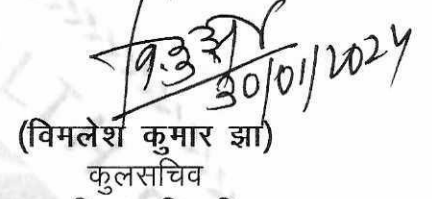 30/01/2024
(विमलेश कुमार झा)
कुलसचिव